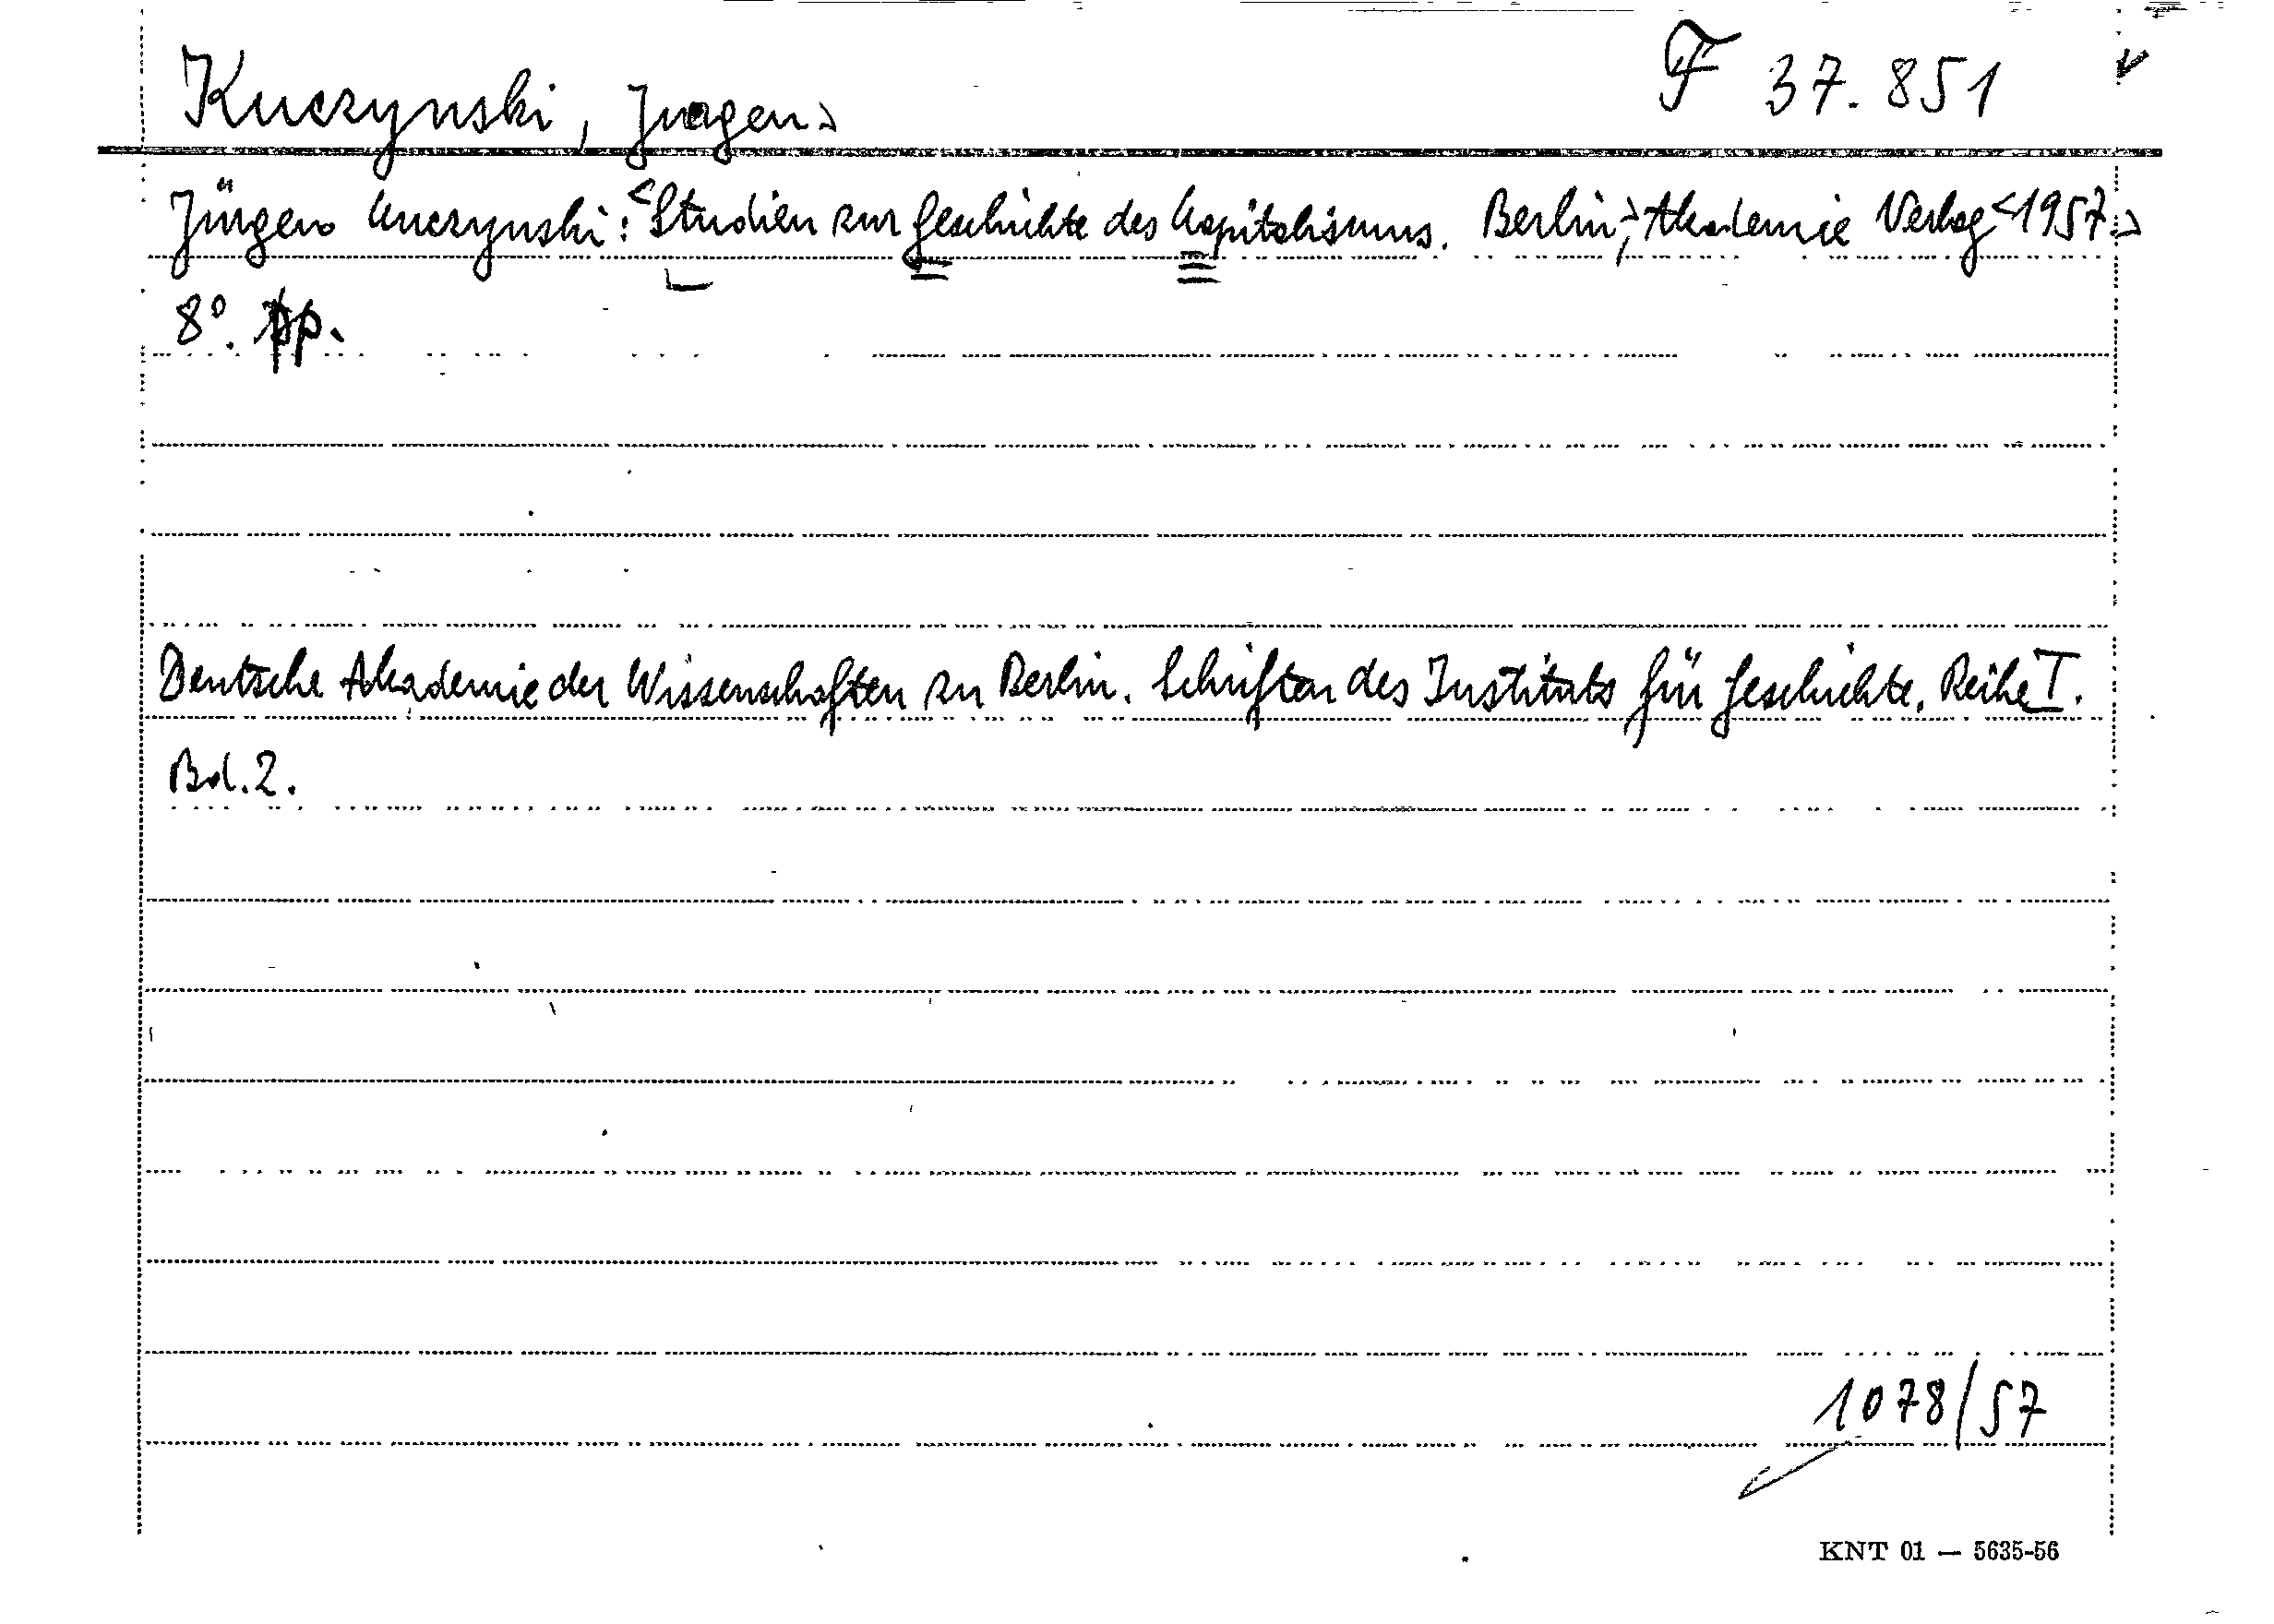 Kuczynski, Juergen> F 37.851
Jürgen Kuczynski: <Studien zur Geschichte des Kapitalismus. Berlin>, Akademie Verlag <1957.>
8°.
Deutsche Akademie der Wissenschaften zu Berlin. Schriften des Instituts für Geschichte. Reihe I.
Bd. 2.
1078/57
KNT 01 — 5635-56